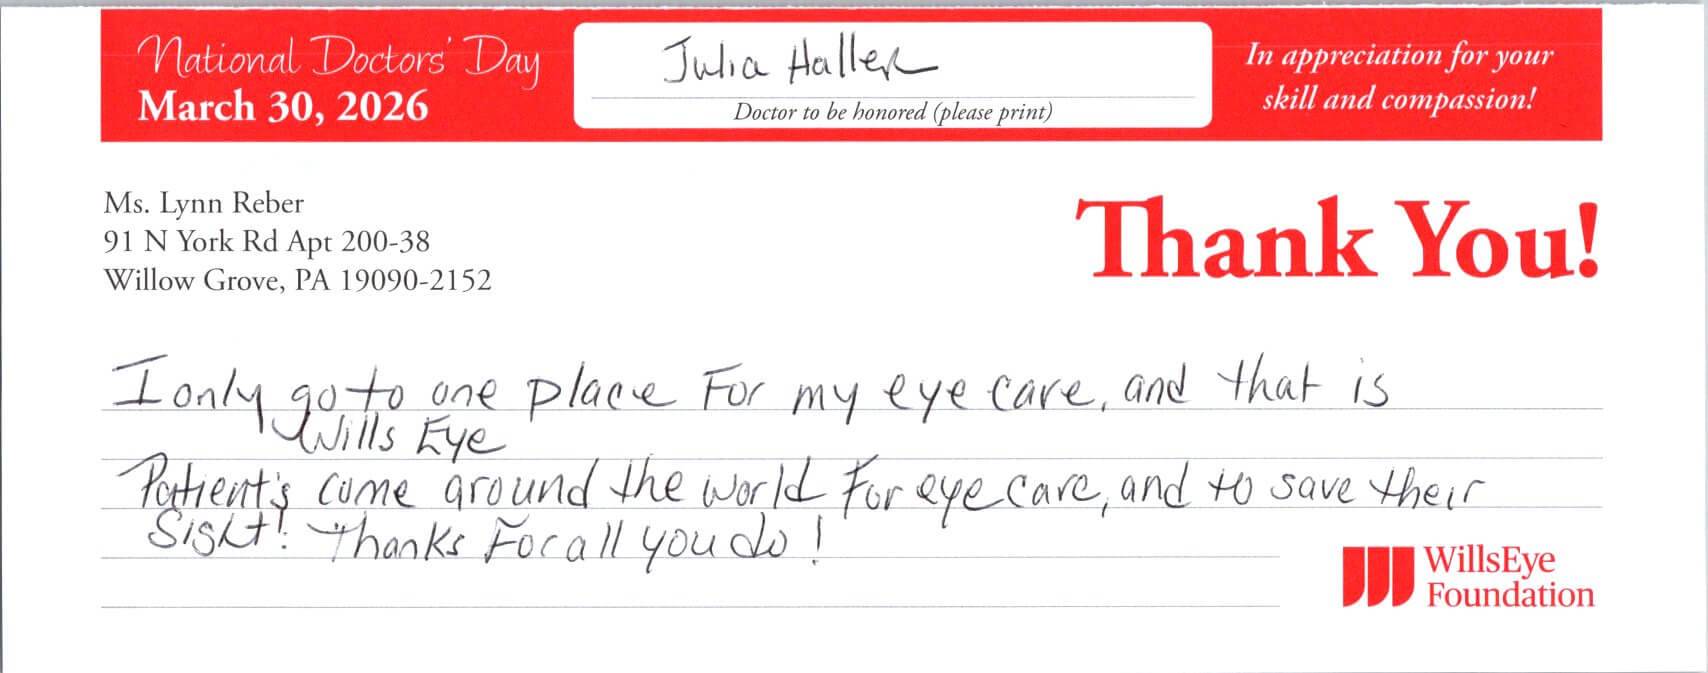 National Doctors' Day
March 30, 2026
Julia Haller
Doctor to be honored (please print)
In appreciation for your
skill and compassion!
Ms. Lynn Reber
91 N York Rd Apt 200-38
Willow Grove, PA 19090-2152
Thank You!
I only go to one place For my eye care, and that is
Wills Eye
Patient's come around the world For eye care, and to save their
Sight! Thanks For all you do!
WillsEye
Foundation